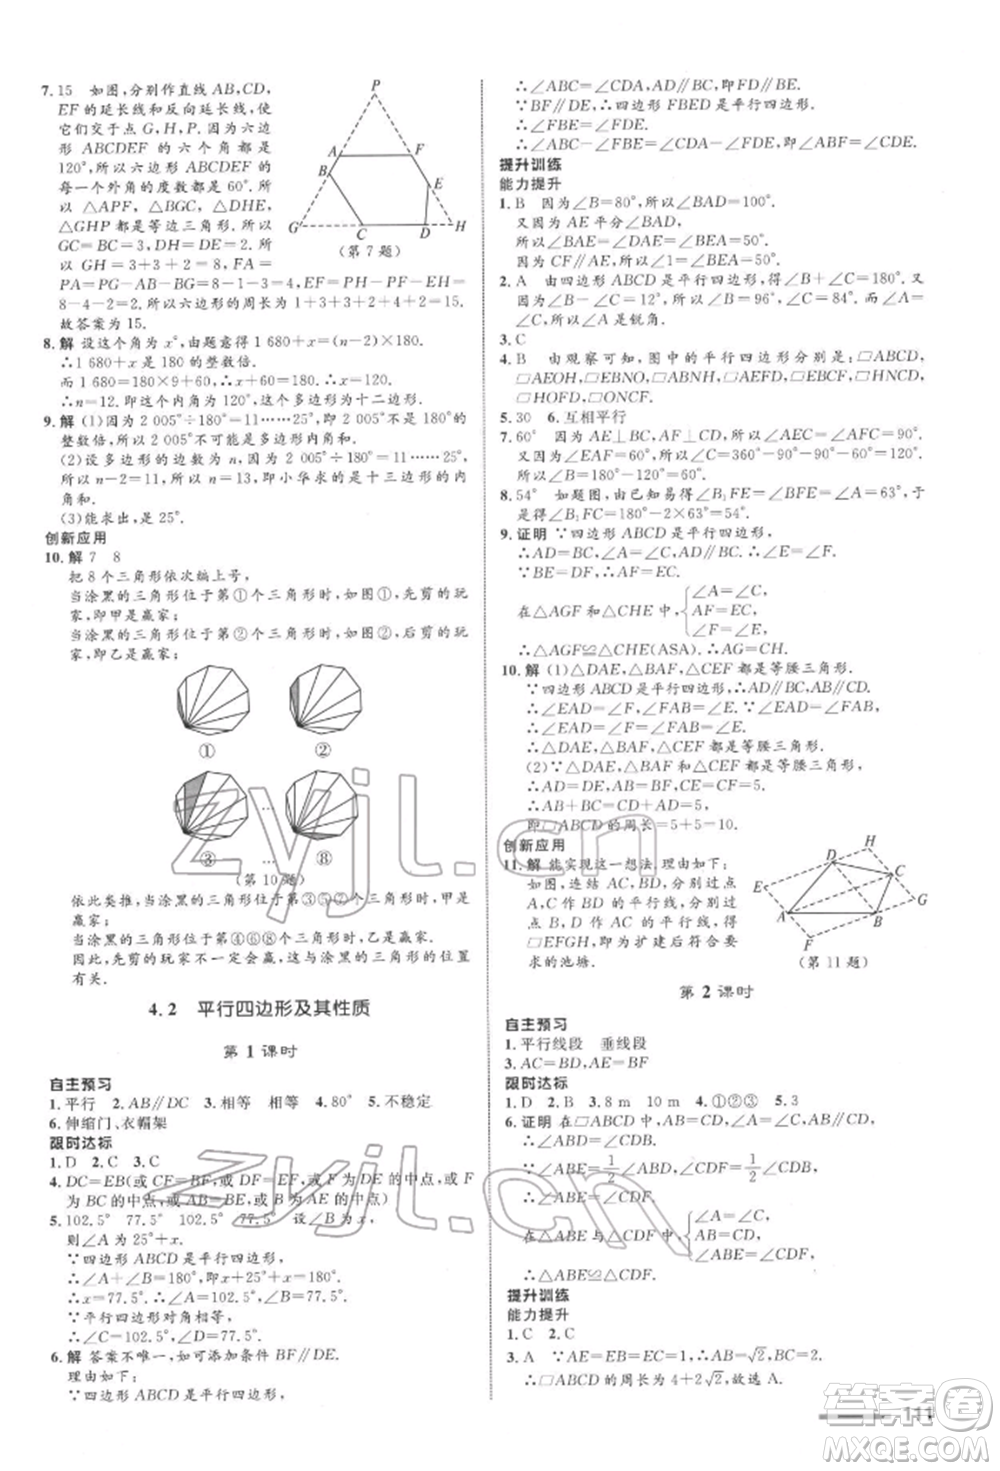 7. 15 如图,分别作直线 AB,CD,
EF 的延长线和反向延长线,使
它们交于点 G,H,P. 因为六边
形 ABCDEF 的六个角都是
120°,所以六边形 ABCDEF 的
每一个外角的度数都是 60°.所
以 △APF, △BGC, △DHE,
△GHP 都是等边三角形.所以
GC=BC=3,DH=DE=2.所
以 GH=3+3+2=8,FA=
PA=PG-AB-BG=8-1-3=4,EF=PH-PF-EH=
8-4-2=2.所以六边形的周长为 1+3+3+2+4+2=15.
故答案为 15.
P
A F
B E
G C D H
(第 7 题)
8. 解 设这个角为 x°,由题意得 1 680+x=(n-2)×180.
∴1 680+x 是 180 的整数倍.
而 1 680=180×9+60,∴x+60=180.∴x=120.
∴n=12.即这个内角为 120°,这个多边形为十二边形.
9. 解 (1)因为 2 005°÷180°=11……25°,即 2 005°不是 180°的
整数倍,所以小明说不可能.
(2)设多边形的边数为 n,因为 2 005°÷180°=11……25°,
所以 n-2=11,所以 n=13,即小华求的是十三边形的内
角和.
(3)能求出,是 25°.
创新应用
10. 解 7 8
把 8 个三角形依次编上号,
当涂黑的三角形位于第①个三角形时,先剪的玩
家,即甲是赢家;
当涂黑的三角形位于第②个三角形时,后剪的玩
家,即乙是赢家;
① ②
… …
③ … ⑧
(第 10 题)
依此类推,当涂黑的三角形位于第③⑤⑦个时,甲是赢家,
当涂黑的三角形位于第④⑥⑧个时,乙是赢家.
因此,先剪的玩家不一定会赢,这与涂黑的三角形的位置
有关.
4.2 平行四边形及其性质
第 1 课时
自主预习
1. 平行 2. AB∥DC 3. 相等 相等 4. 80° 5. 不稳定
6. 伸缩门、衣帽架
限时达标
1. D 2. C 3. C
4. DC=EB(或 CF=BF,或 DF=EF,或 F 为 DE 的中点,或 F
为 BC 的中点,或 AB=BE,或 B 为 AE 的中点)
5. 102.5° 77.5° 102.5° 77.5° 设∠B=x,
则∠A=25°+x.
∵四边形 ABCD 是平行四边形,
∴∠A+∠B=180°,即 x+25°+x=180°.
∴x=77.5°.∴∠A=102.5°,∠B=77.5°.
∵平行四边形对角相等,
∴∠C=102.5°,∠D=77.5°.
6. 解 答案不唯一,可添加条件 BF∥DE.
理由如下:
∵四边形 ABCD 是平行四边形,
∴∠ABC=∠CDA,AD∥BC,即FD∥BE.
∵BF∥DE,∴四边形 FBED 是平行四边形.
∴∠FBE=∠FDE.
∴∠ABC-∠FBE=∠CDA-∠FDE,即∠ABF=∠CDE.
提升训练
能力提升
1. B 因为∠B=80°,所以∠BAD=100°.
又因为 AE 平分∠BAD,
所以∠BAE=∠DAE=∠BEA=50°.
因为 CF∥AE,所以∠1=∠BEA=50°.
2. A 由四边形 ABCD 是平行四边形,知∠B+∠C=180°.
因为∠B-∠C=12°,所以∠B=96°,∠C=84°.故∠A=
∠C=84°,所以∠A是锐角.
3. C
4. B 由观察可知,图中的平行四边形分别是:□ABCD,
□AEOH,□EBNO,□ABNH,□AEFD,□EBCF,□HNCD,
□HOFD,□ONCF.
5. 30 6. 互相平行
7. 60° 因为 AE⊥BC,AF⊥CD,所以∠AEC=∠AFC=90°.
又因为∠EAF=60°,所以∠C=360°-90°-90°-60°=120°.
所以∠B=180°-120°=60°.
8. 54° 如题图,由已知易得∠B₁FE=∠BFE=∠CEF=63°,
于是∠B₁FC=180°-2×63°=54°.
9. 证明 ∵四边形 ABCD 是平行四边形,
∴AD=BC,∠A=∠C,AF∥CE.
∵BE=DF,∴AF=CE,∠E=∠F.
在△AGF 和△CHE 中, { ∠A=∠C, AF=EC, ∠F=∠E,
∴△AGF≌△CHE(ASA).∴AG=CH.
10. 解 (1)△DAE,△BAF,△CEF 是等腰三角形.
∵四边形 ABCD 是平行四边形,∴AD∥BC,AB∥CD.
∴∠EAD=∠F,∠FAB=∠E.
又∵∠EAD=∠FAB,∴∠EAD=∠F=∠FAB=∠E.
∴△DAE,△BAF 和△CEF 是等腰三角形.
(2)∵△DAE,△BAF 和△CEF 都是等腰三角形,
∴AD=DE,AB=BF,CE=CF=5.
∴AB+BC=CF=5.
即□ABCD 的周长=5+5=10.
创新应用
11. 解 能实现这一想法.理由如下:
如图,连结 AC,BD,分别过点
A,C 作 BD 的平行线,分别过点
B,D 作 AC 的平行线,得
□EFGH,即为扩建后符合要求
的池塘.
H
D C
E G
A B
F
(第 11 题)
第 2 课时
自主预习
1. 平行线段 垂线段
3. AC=BD,AE=BF
限时达标
1. D 2. B 3. 8 m 10 m 4. ①②③ 5. 3
6. 证明 在□ABCD 中,AB=CD,∠A=∠C,
∴∠ABC=∠CDA.
∵∠ABE=1/2∠ABC,∠CDF=1/2∠CDA,
∴∠ABE=∠CDF.
在△ABE 与△CDF 中, { ∠A=∠C, AB=CD, ∠ABE=∠CDF,
∴△ABE≌△CDF.
提升训练
能力提升
1. C 2. C
3. A ∵AE=BE=EC=1,∴AB=√2,BC=2,
∴□ABCD 的周长为 4+2√2,故选 A.
111
zyjl.cn
zyjl.cn
答案圈
MXQE.COM